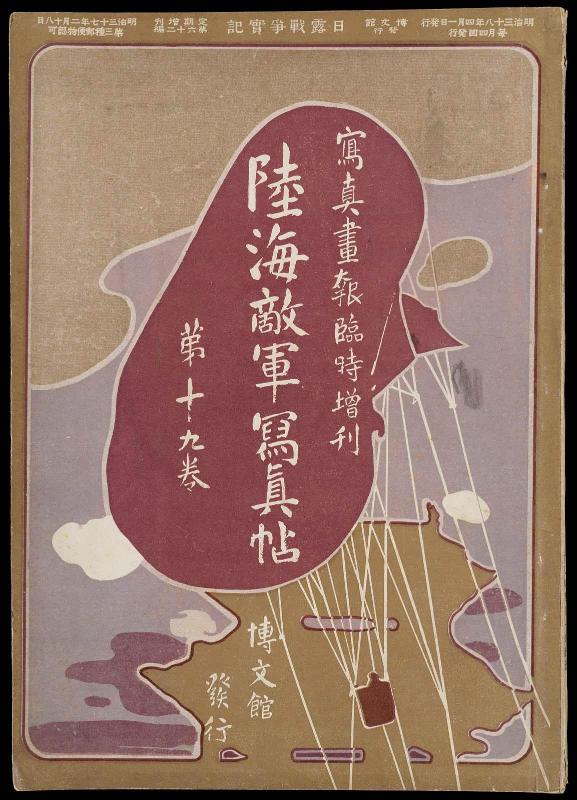 明治三十八年四月一日発行
毎月四回発行
博文館
発行
日露戰爭實記
定期増刊
第六十二編
明治三十七年二月十八日
第三種郵便物認可
寫真畫報臨時增刊
陸海敵軍寫眞帖
第十九巻
博文館
發行